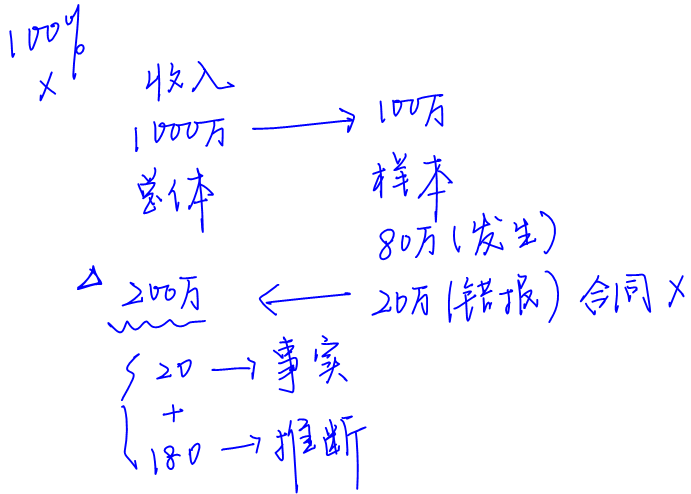 100%
×
收入
1000万 → 100万
总体 样本
80万(发生)
△ 200万 ← 20万(错报) 合同 ×
20 → 事实
+
180 → 推断